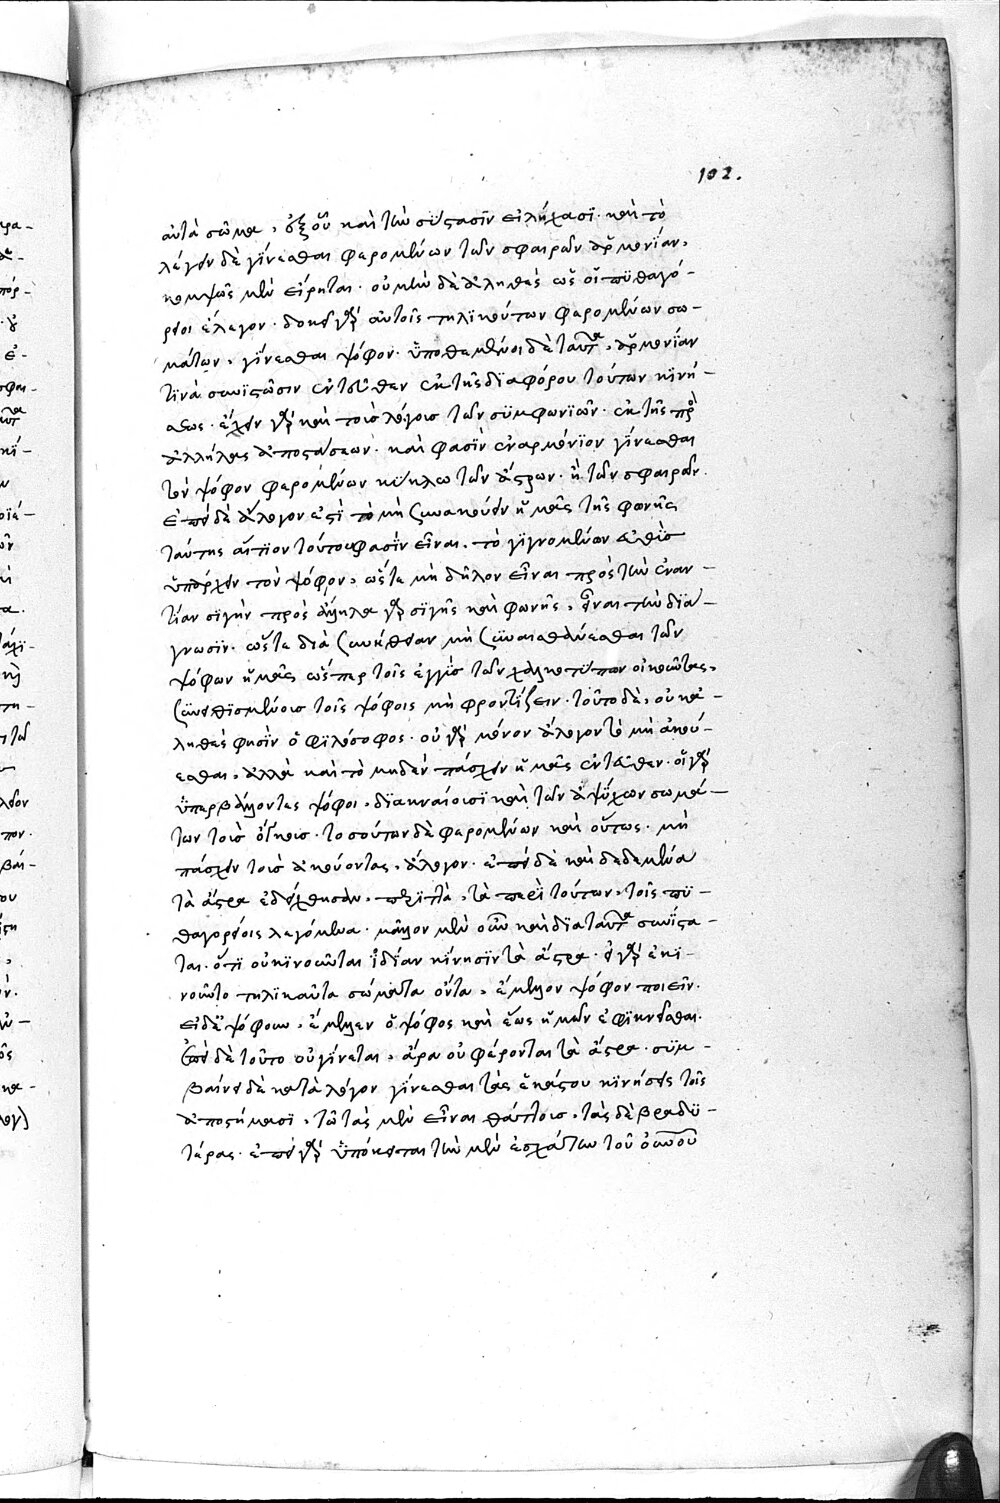 102.
αὐτὰ σῶμα, ἐξ οὗ καὶ τὴν σύστασιν εἰλήχασι· καὶ τὸ
λέγειν δὲ γίνεσθαι φερομένων τῶν σφαιρῶν ἁρμονίαν,
κομψῶς μὲν εἴρηται· οὐ μὴν δὲ ἀληθὲς ὡς οἱ πυθαγό-
ρειοι ἔλεγον· δοκεῖ γὰρ αὐτοῖς τηλικούτων φερομένων σω-
μάτων, γίνεσθαι ψόφον· ὑποθέμενοι δὲ ταῦτα, ἁρμονίαν
τινὰ συνιστῶσιν ἐντεῦθεν ἐκ τῆς διαφόρου τούτων κινή-
σεως· ἔχειν γὰρ καὶ τοὺς λόγους τῶν συμφωνιῶν· ἐκ τῆς πρὸς
ἀλλήλας ἀποστάσεων· καὶ φασὶν ἐναρμόνιον γίνεσθαι
τὸν ψόφον φερομένων κύκλω τῶν ἄστρων· ἢ τῶν σφαιρῶν·
ἐπεὶ δὲ ἄλογον ἐστὶ τὸ μὴ συνακούειν ἡμᾶς τῆς φωνῆς
ταύτης αἴτιον τούτου φασὶν εἶναι, τὸ γιγνομένων εὐθὺς
ὑπάρχειν τὸν ψόφον, ὥστε μὴ δῆλον εἶναι πρὸς τὴν ἐναν-
τίαν σιγήν πρὸς ἄλληλα γὰρ σιγῆς καὶ φωνῆς, εἶναι τὴν διά-
γνωσιν· ὥστε διὰ συνήθειαν μὴ συναισθάνεσθαι τῶν
ψόφων ἡμᾶς ὥσπερ τοῖς ἐγγὺς τῶν χαλκοτύπων οἰκοῦντας,
συνειθισμένοις τοῖς ψόφοις μὴ φροντίζειν· τοῦτο δὲ, οὐκ ἀ-
ληθές φησὶν ὁ φιλόσοφος· οὐ γὰρ μόνον ἄλογον τὸ μὴ ἀκού-
εσθαι, ἀλλὰ καὶ τὸ μηδὲν πάσχειν ἡμᾶς ἐντεῦθεν· οἱ γὰρ
ὑπερβάλλοντες ψόφοι, διακναίουσι καὶ τῶν ἀψύχων σωμά-
των τοὺς ὄγκους· τοσούτων δὲ φερομένων καὶ οὕτως· μὴ
πάσχειν τοὺς ἀκούοντας, ἄλογον· ἐπεὶ δὲ καὶ δεδεμένα
τὰ ἄστρα ἐδείχθησαν, περιττὰ, τὰ περὶ τούτων, τοῖς πυ-
θαγορείοις λεγόμενα· μᾶλλον μὲν οὖν καὶ διὰ ταῦτα συνίστα-
ται· ὅτι οὐ κινοῦνται ἰδίαν κίνησιν τὰ ἄστρα· εἰ γὰρ ἐκι-
νοῦντο τηλικαῦτα σώματα ὄντα, ἔμελλον ψόφον ποιεῖν·
εἰ δὲ ψόφουν, ἔμελλεν ὁ ψόφος καὶ ἕως ἡμῶν ἐφικνεῖσθαι·
ἐπεὶ δὲ τοῦτο οὐ γίνεται, ἄρα οὐ φέρονται τὰ ἄστρα· συμ-
βαίνει δὲ κατὰ λόγον γίνεσθαι τὰς ἑκάστου κινήσεις τοῖς
ἀποστήμασι, τῷ τὰς μὲν εἶναι θάττους, τὰς δὲ βραδυ-
τέρας· ἐπεὶ γὰρ ὑπόκειται τὴν μὲν ἐσχάτην τοῦ οὐρανοῦ